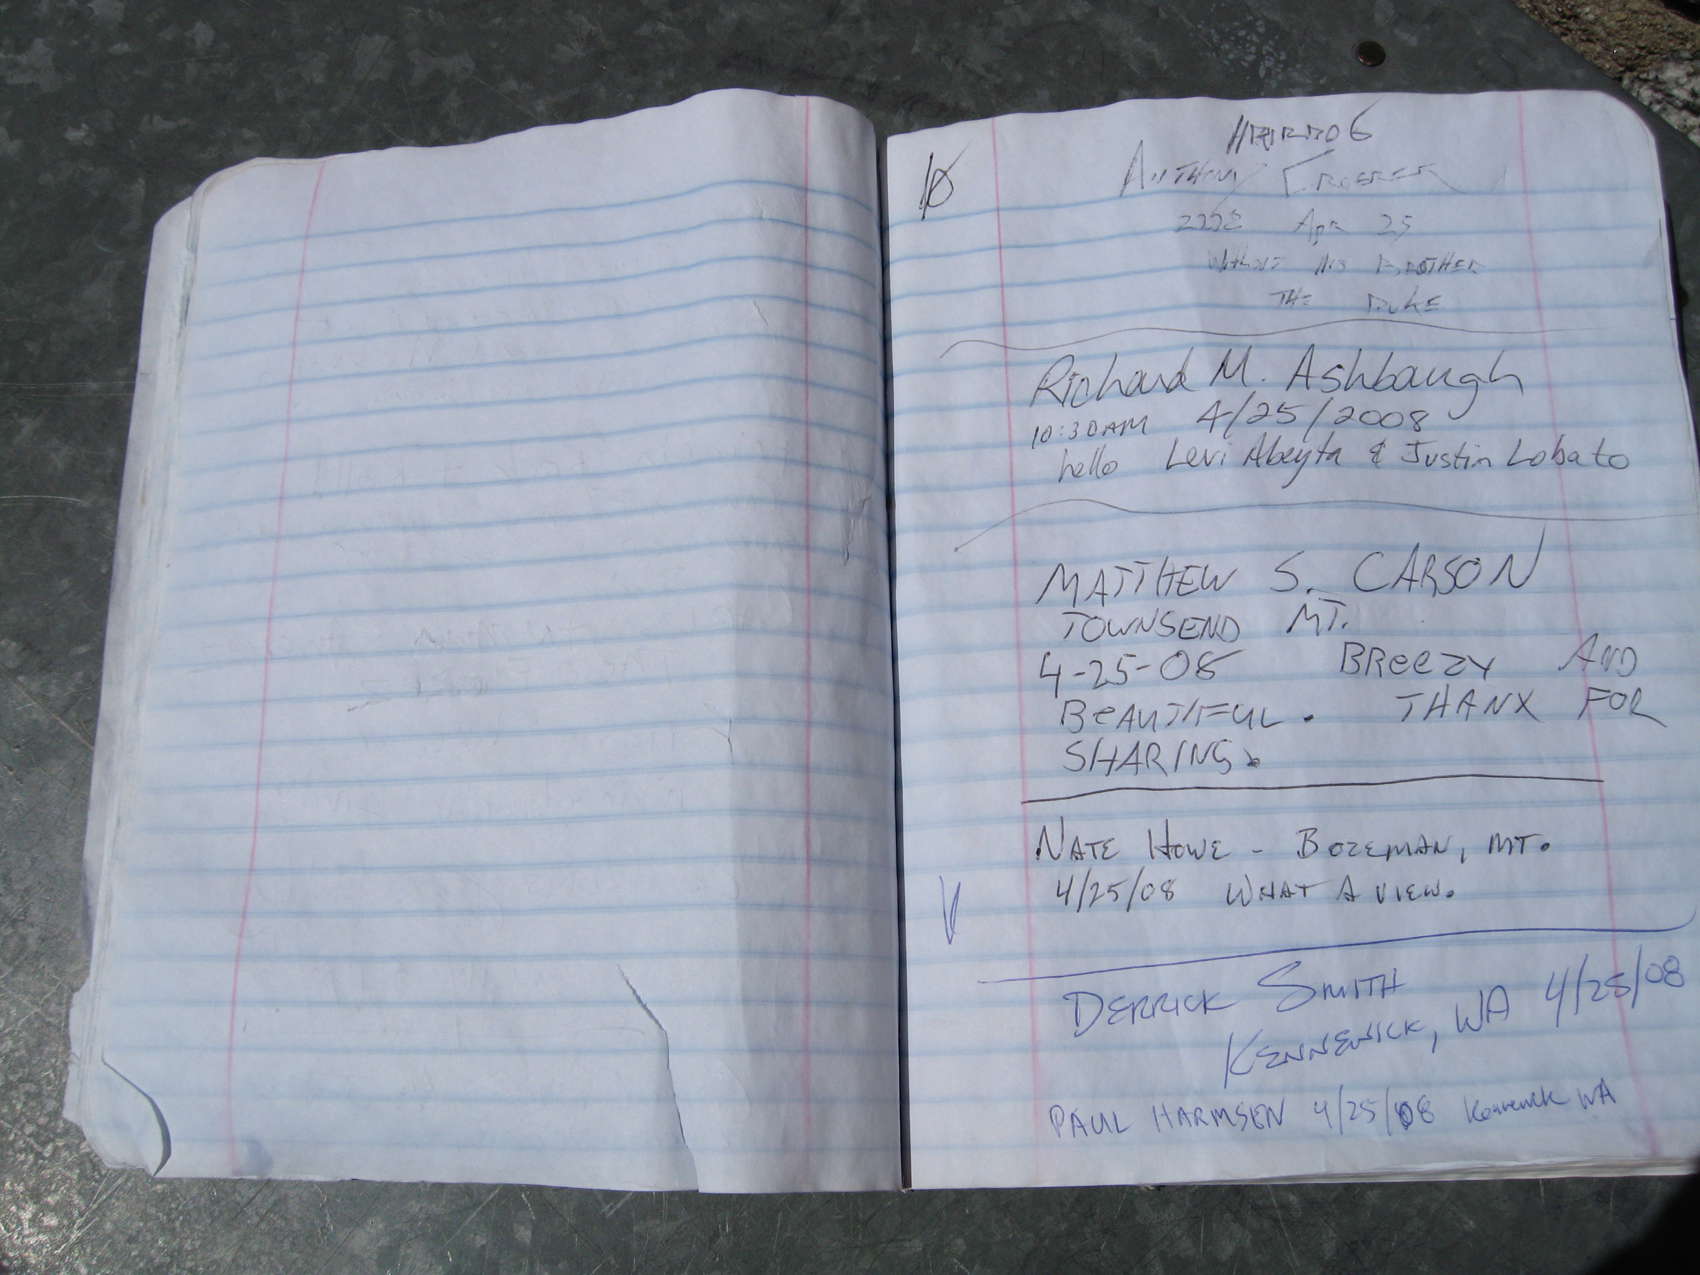 Anthony
2008 Apr 25
Without his Brother
The Duke
Richard M. Ashbaugh
10:30AM 4/25/2008
hello Levi Abeyta & Justin Lobato
MATTHEW S. CARSON
TOWNSEND MT.
4-25-08 BReezy AND
BeAUTIFUL. THANX FOR
SHARING.
NATE HOWE - BOZEMAN, MT.
4/25/08 WHAT A VIEW.
DERRICK SMITH
KENNEWICK, WA 4/25/08
PAUL HARMSEN 4/25/08 Kennewick WA